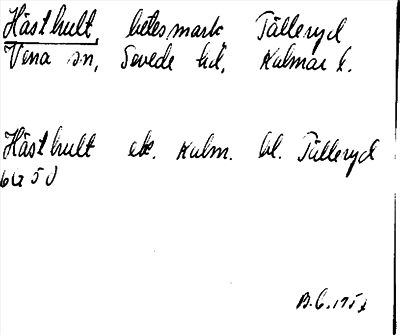 Hästhult, betesmark Tälleryd
Vena sn, Sevede hd, Kalmar l.
Hästhult ek. Kalm. bl. Tälleryd